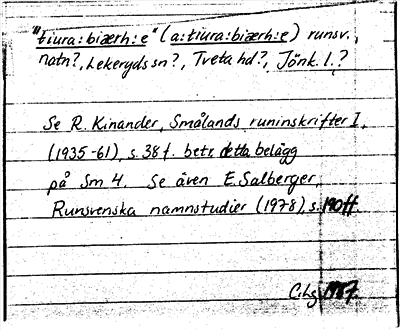 "tiura:biærh:e" (a:tiura:biærh:e) runsv.,
natn?, Lekeryds sn?, Tveta hd?, Jönk. l.?
Se R. Kinander, Smålands runinskrifter I,
(1935-61), s. 38 f. betr. detta belägg
på Sm 4. Se även E. Salberger,
Runsvenska namnstudier (1978), s. 190 ff.
1987.